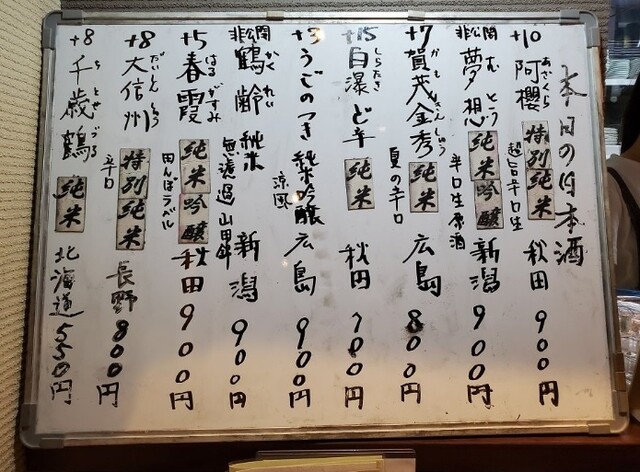 本日の日本酒
+10 阿櫻 あざくら 特別純米 超旨辛口生 秋田 900円
非公開 夢想 むそう 純米吟醸 辛口生原酒 新潟 900円
+7 賀茂金秀 かもきんしゅう 純米 夏の辛口 広島 800円
+15 白瀑 しらたき ど辛 純米 秋田 円
+3 うごのつき 純米吟醸 涼風 広島 900円
非公開 鶴齢 かくれい 純米 無濾過 山田錦 新潟 900円
+5 春霞 はるがすみ 純米吟醸 田んぼラベル 秋田 900円
+8 大信州 だいしんしゅう 特別純米 辛口 長野 800円
+8 千歳鶴 ちとせづる 純米 北海道 550円